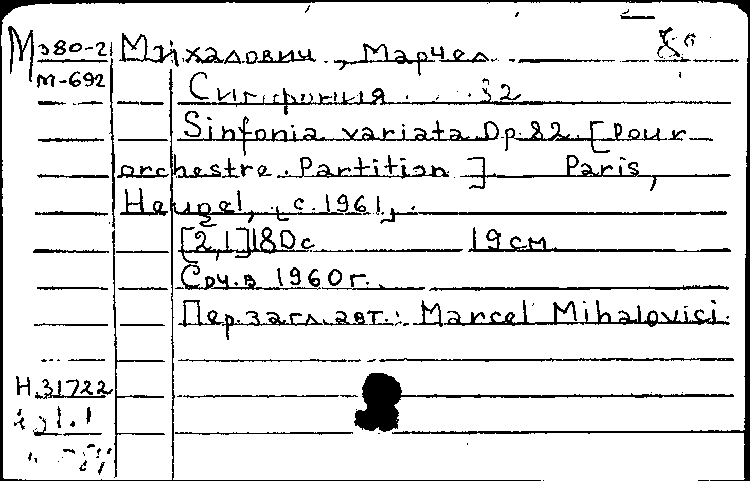 М380-2 Михалович, Марчел
М-692
Симфония 82
Sinfonia variata Op. 82. [Pour
orchestre. Partition] Paris,
Heugel, [c. 1961].
[2,1] 180 с. 19 см
Соч. в 1960 г.
Пер. загл. авт.: Marcel Mihalovici.
Н.31722